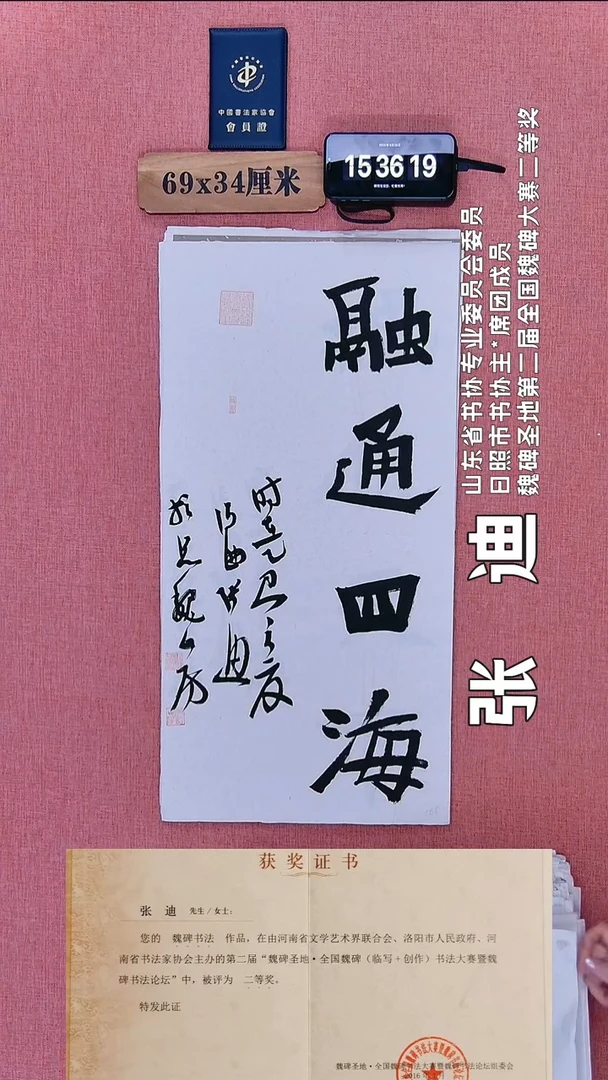 中國書法家協會
會員證
69x34厘米
15 36 19
融通四海
时在己之夏
张迪
于思魏々房
山东省书协专业委员会委员
日照市书协主*席团成员
魏碑圣地第二届全国魏碑大赛二等奖
张 迪
获奖证书
张 迪 先生/女士:
您的 魏碑书法 作品，在由河南省文学艺术界联合会、洛阳市人民政府、河
南省书法家协会主办的第二届“魏碑圣地·全国魏碑（临写+创作）书法大赛暨魏
碑书法论坛”中，被评为 二等奖。
特发此证
魏碑圣地·全国魏碑书法大赛暨魏碑书法论坛组委会